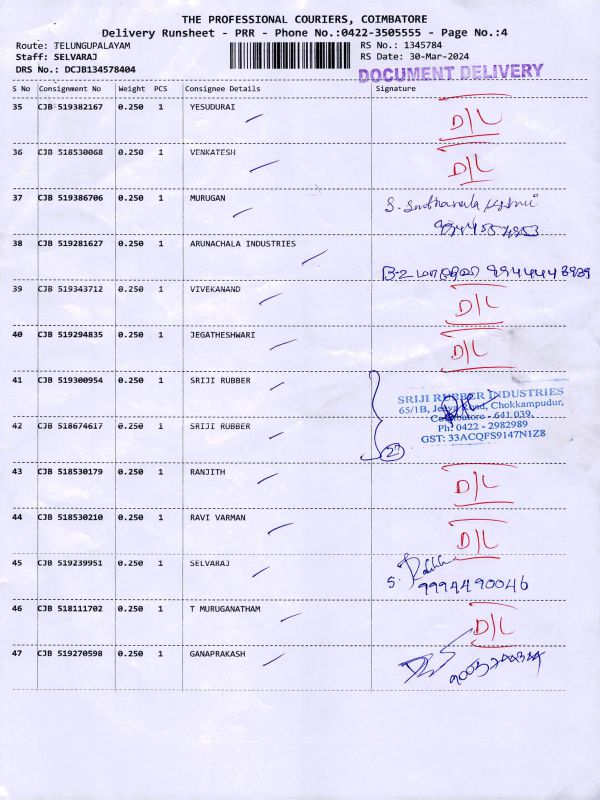 THE PROFESSIONAL COURIERS, COIMBATORE
Delivery Runsheet - PRR - Phone No.:0422-3505555 - Page No.:4
Route: TELUNGUPALAYAM RS No.: 1345784
Staff: SELVARAJ RS Date: 30-Mar-2024
DRS No.: DCJB134578404 DOCUMENT DELIVERY
S No Consignment No Weight PCS Consignee Details Signature
35 CJB 519382167 0.250 1 YESUDURAI D/L
36 CJB 518530068 0.250 1 VENKATESH D/L
37 CJB 519386706 0.250 1 MURUGAN S.
38 CJB 519281627 0.250 1 ARUNACHALA INDUSTRIES
39 CJB 519343712 0.250 1 VIVEKANAND D/L
40 CJB 519294835 0.250 1 JEGATHESHWARI D/L
41 CJB 519300954 0.250 1 SRIJI RUBBER
SRIJI RUBBER INDUSTRIES
65/1B, Road, Chokkampudur,
Coimbatore - 641 039.
42 CJB 518674617 0.250 1 SRIJI RUBBER Ph: 0422 - 2982989
GST: 33ACQFS9147N1Z8
43 CJB 518530179 0.250 1 RANJITH D/L
44 CJB 518530210 0.250 1 RAVI VARMAN D/L
45 CJB 519239951 0.250 1 SELVARAJ S.
9994490046
46 CJB 518111702 0.250 1 T MURUGANATHAM D/L
47 CJB 519270598 0.250 1 GANAPRAKASH